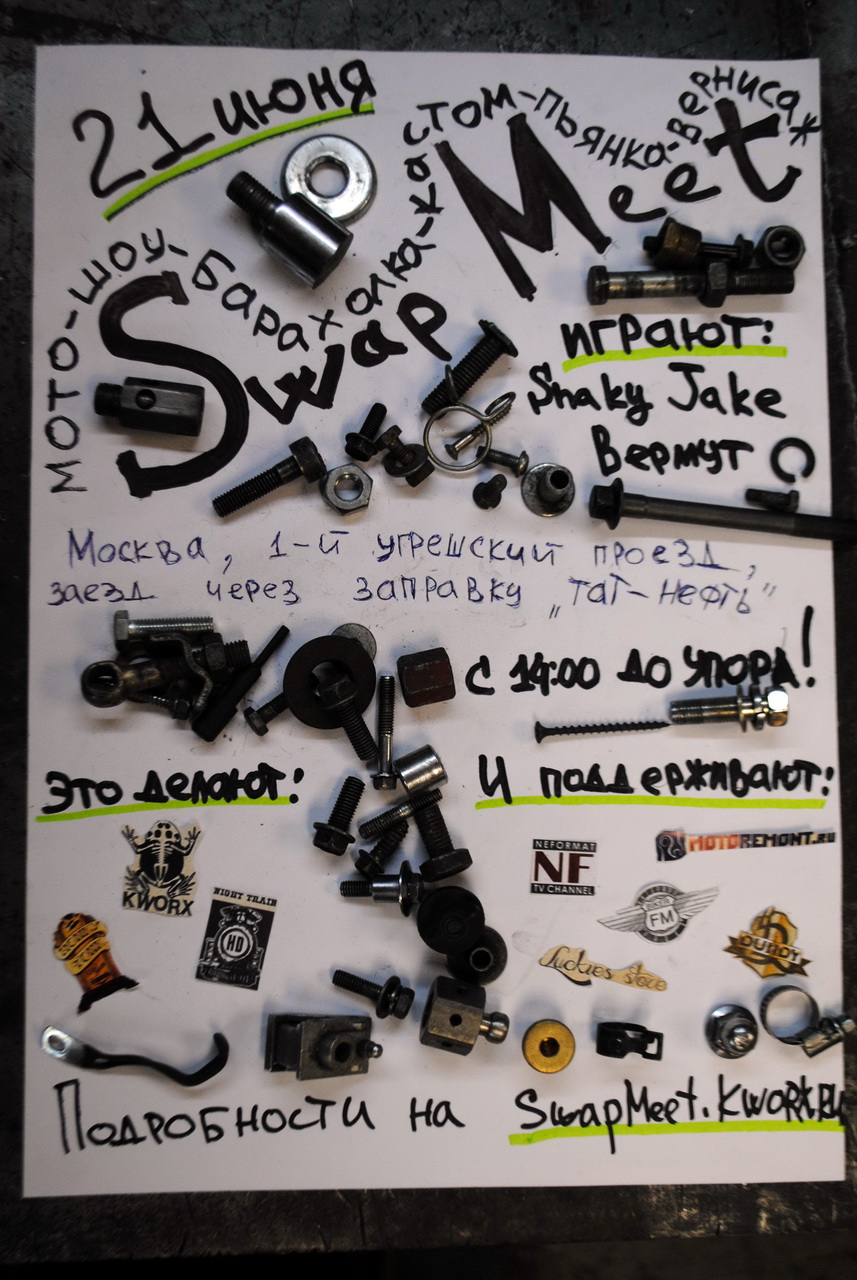 21 июня
мото-шоу-барахолка-кастом-пьянка-вернисаж
Swap Meet
играют:
Shaky Jake
Вермут
Москва, 1-й угрешский проезд,
заезд через заправку „Тат-Нефть"
с 14:00 до упора!
Это делают:
И поддерживают:
KWORX
NIGHT TRAIN
HD
NEFORMAT
NF
TV CHANNEL
MOTOREMONT.RU
FM
Luckies store
DUNDY
Подробности на SwapMeet.KWORX.RU